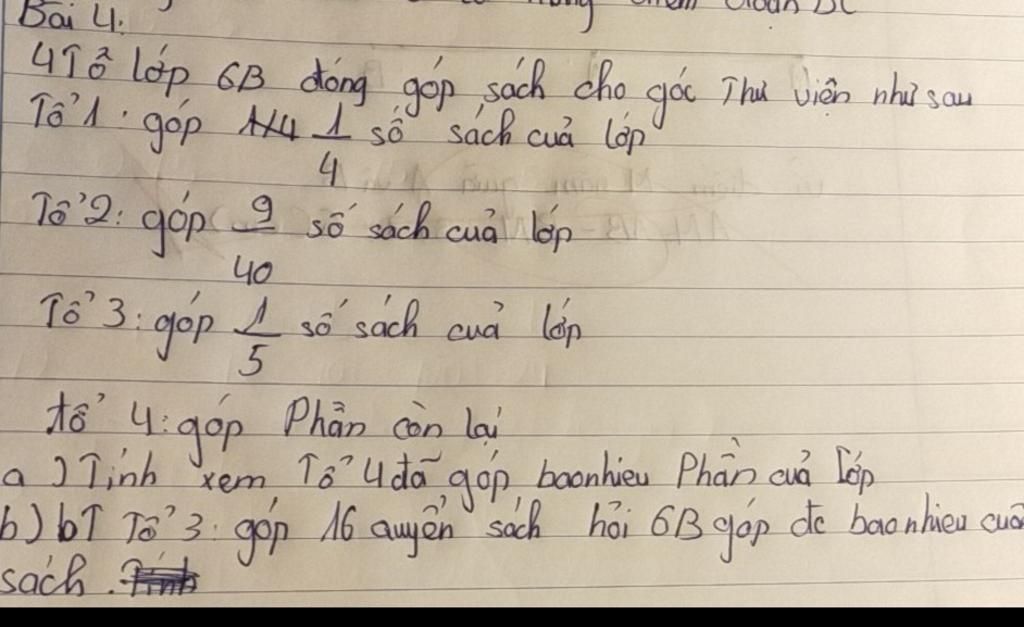 Bài 4.
4 Tổ lớp 6B đóng góp sách cho góc Thư viện như sau
Tổ 1: góp 1/4 số sách của lớp
Tổ 2: góp 9/40 số sách của lớp
Tổ 3: góp 1/5 số sách của lớp
tổ 4: góp Phần còn lại
a) Tính xem Tổ 4 đã góp bao nhiêu Phần của lớp
b) bT Tổ 3: góp 16 quyển sách hỏi 6B góp đc bao nhieu cuốn
sách.